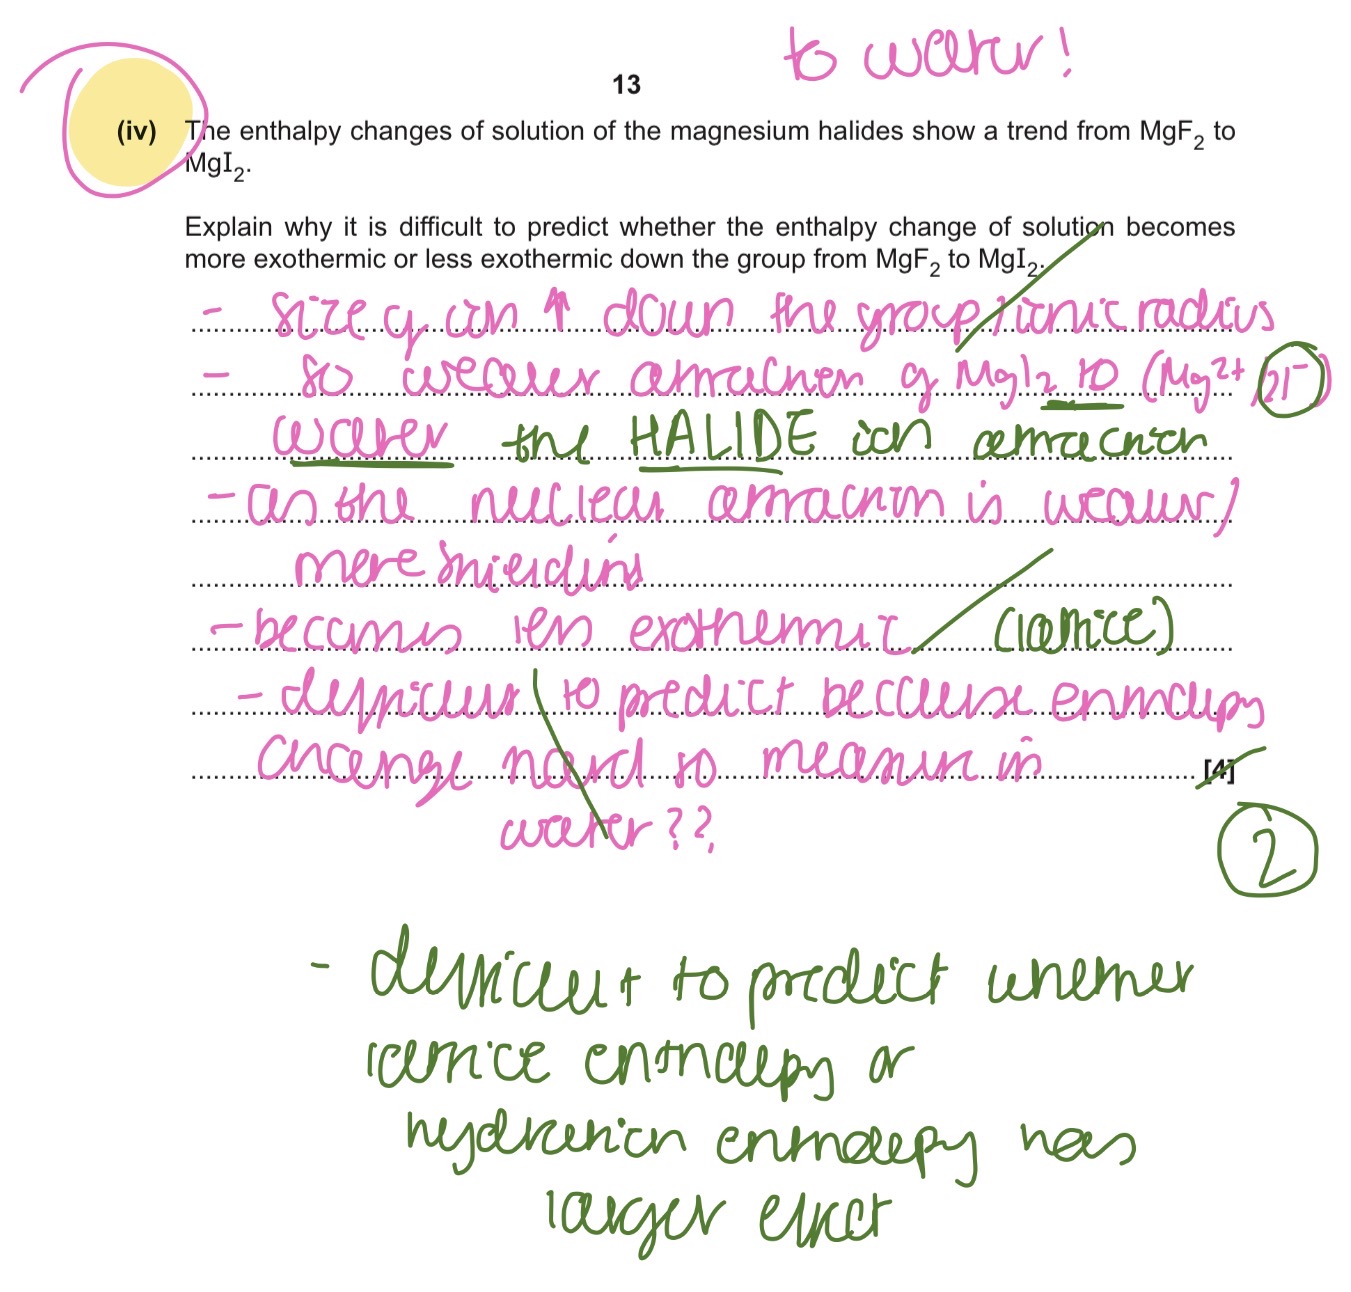 to water!
13
(iv) The enthalpy changes of solution of the magnesium halides show a trend from MgF2 to
MgI2.
Explain why it is difficult to predict whether the enthalpy change of solution becomes
more exothermic or less exothermic down the group from MgF2 to MgI2.
- size of ion ↑ down the group / ionic radius
- so weaker attraction of MgI2 to (Mg2+ / 2I-)
water the HALIDE ion attraction
- as the nuclear attraction is weaker /
more shielding
- becomes less exothermic (lattice)
- difficult to predict because enthalpy
change hard to measure in [4]
water??
2
- difficult to predict whether
lattice enthalpy or
hydration enthalpy has
larger effect